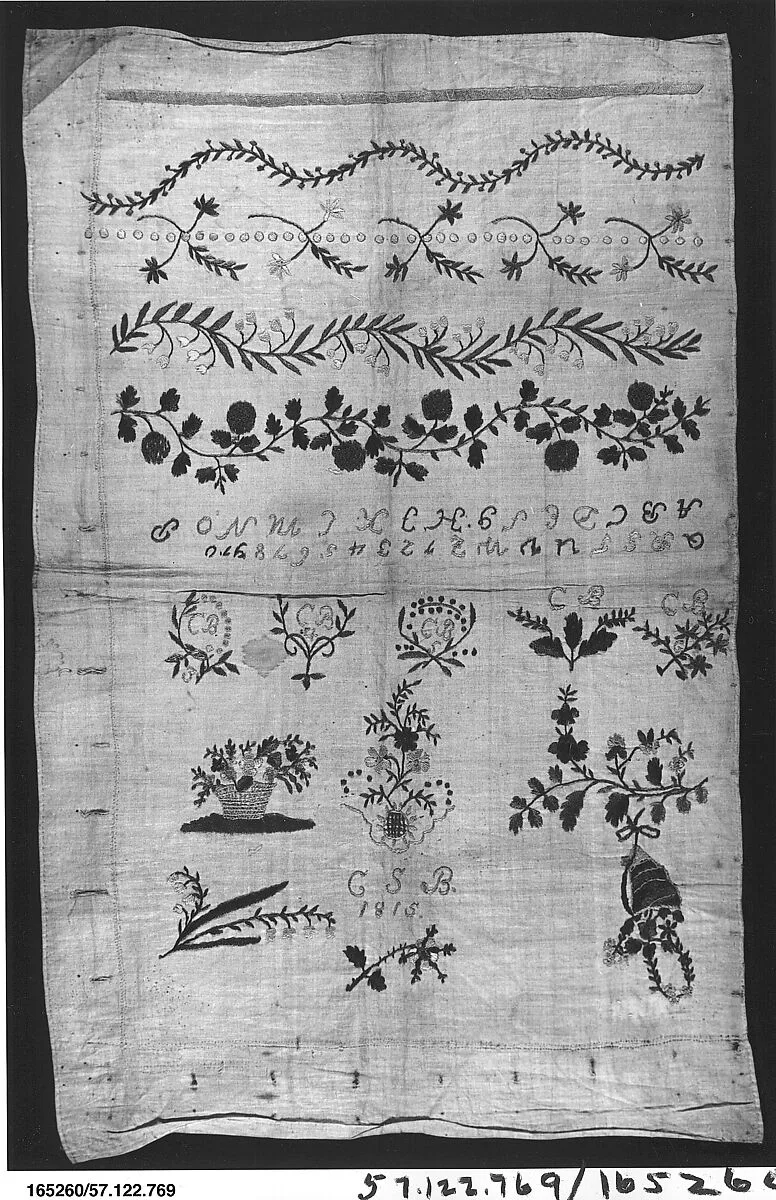 A B C D E F G H I K L M N O P
Q R S T U V W Z 1 2 3 4 5 6 7 8 9 0
CB
CB
CB
C B
C B
C S B.
1815.
165260/57.122.769
57.122.769/165260